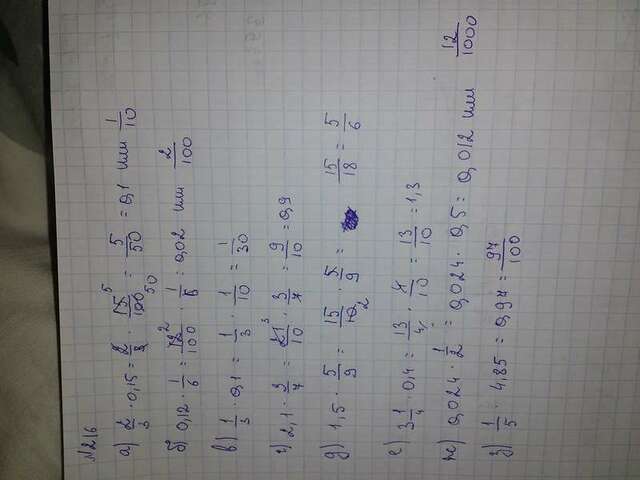 N 216
а) 2/3 · 0,15 = 2/3 · 15/100 = 5/50 = 0,1 или 1/10
б) 0,12 · 1/6 = 12/100 · 1/6 = 0,02 или 2/100
в) 1/3 · 0,1 = 1/3 · 1/10 = 1/30
г) 2,1 · 3/7 = 21/10 · 3/7 = 9/10 = 0,9
д) 1,5 · 5/9 = 15/10 · 5/9 = 15/18 = 5/6
е) 3 1/4 · 0,4 = 13/4 · 4/10 = 13/10 = 1,3
ж) 0,024 · 1/2 = 0,024 · 0,5 = 0,012 или 12/1000
з) 1/5 · 4,85 = 0,97 = 97/100